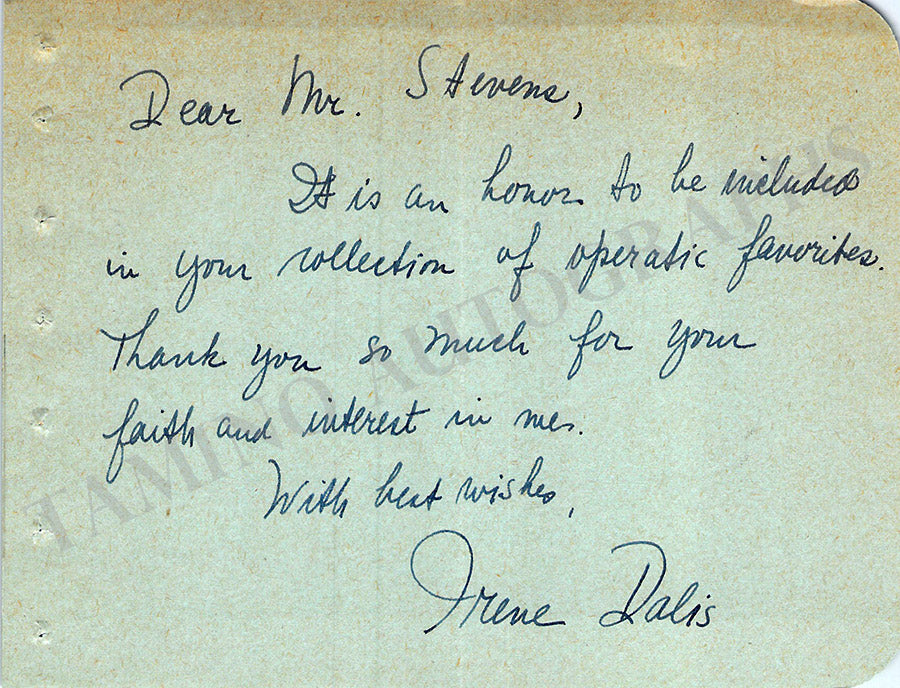 Dear Mr. Stevens,
It is an honor to be included
in your collection of operatic favorites.
Thank you so much for your
faith and interest in me.
With best wishes,
Irene Dalis
TAMINO AUTOGRAPHS